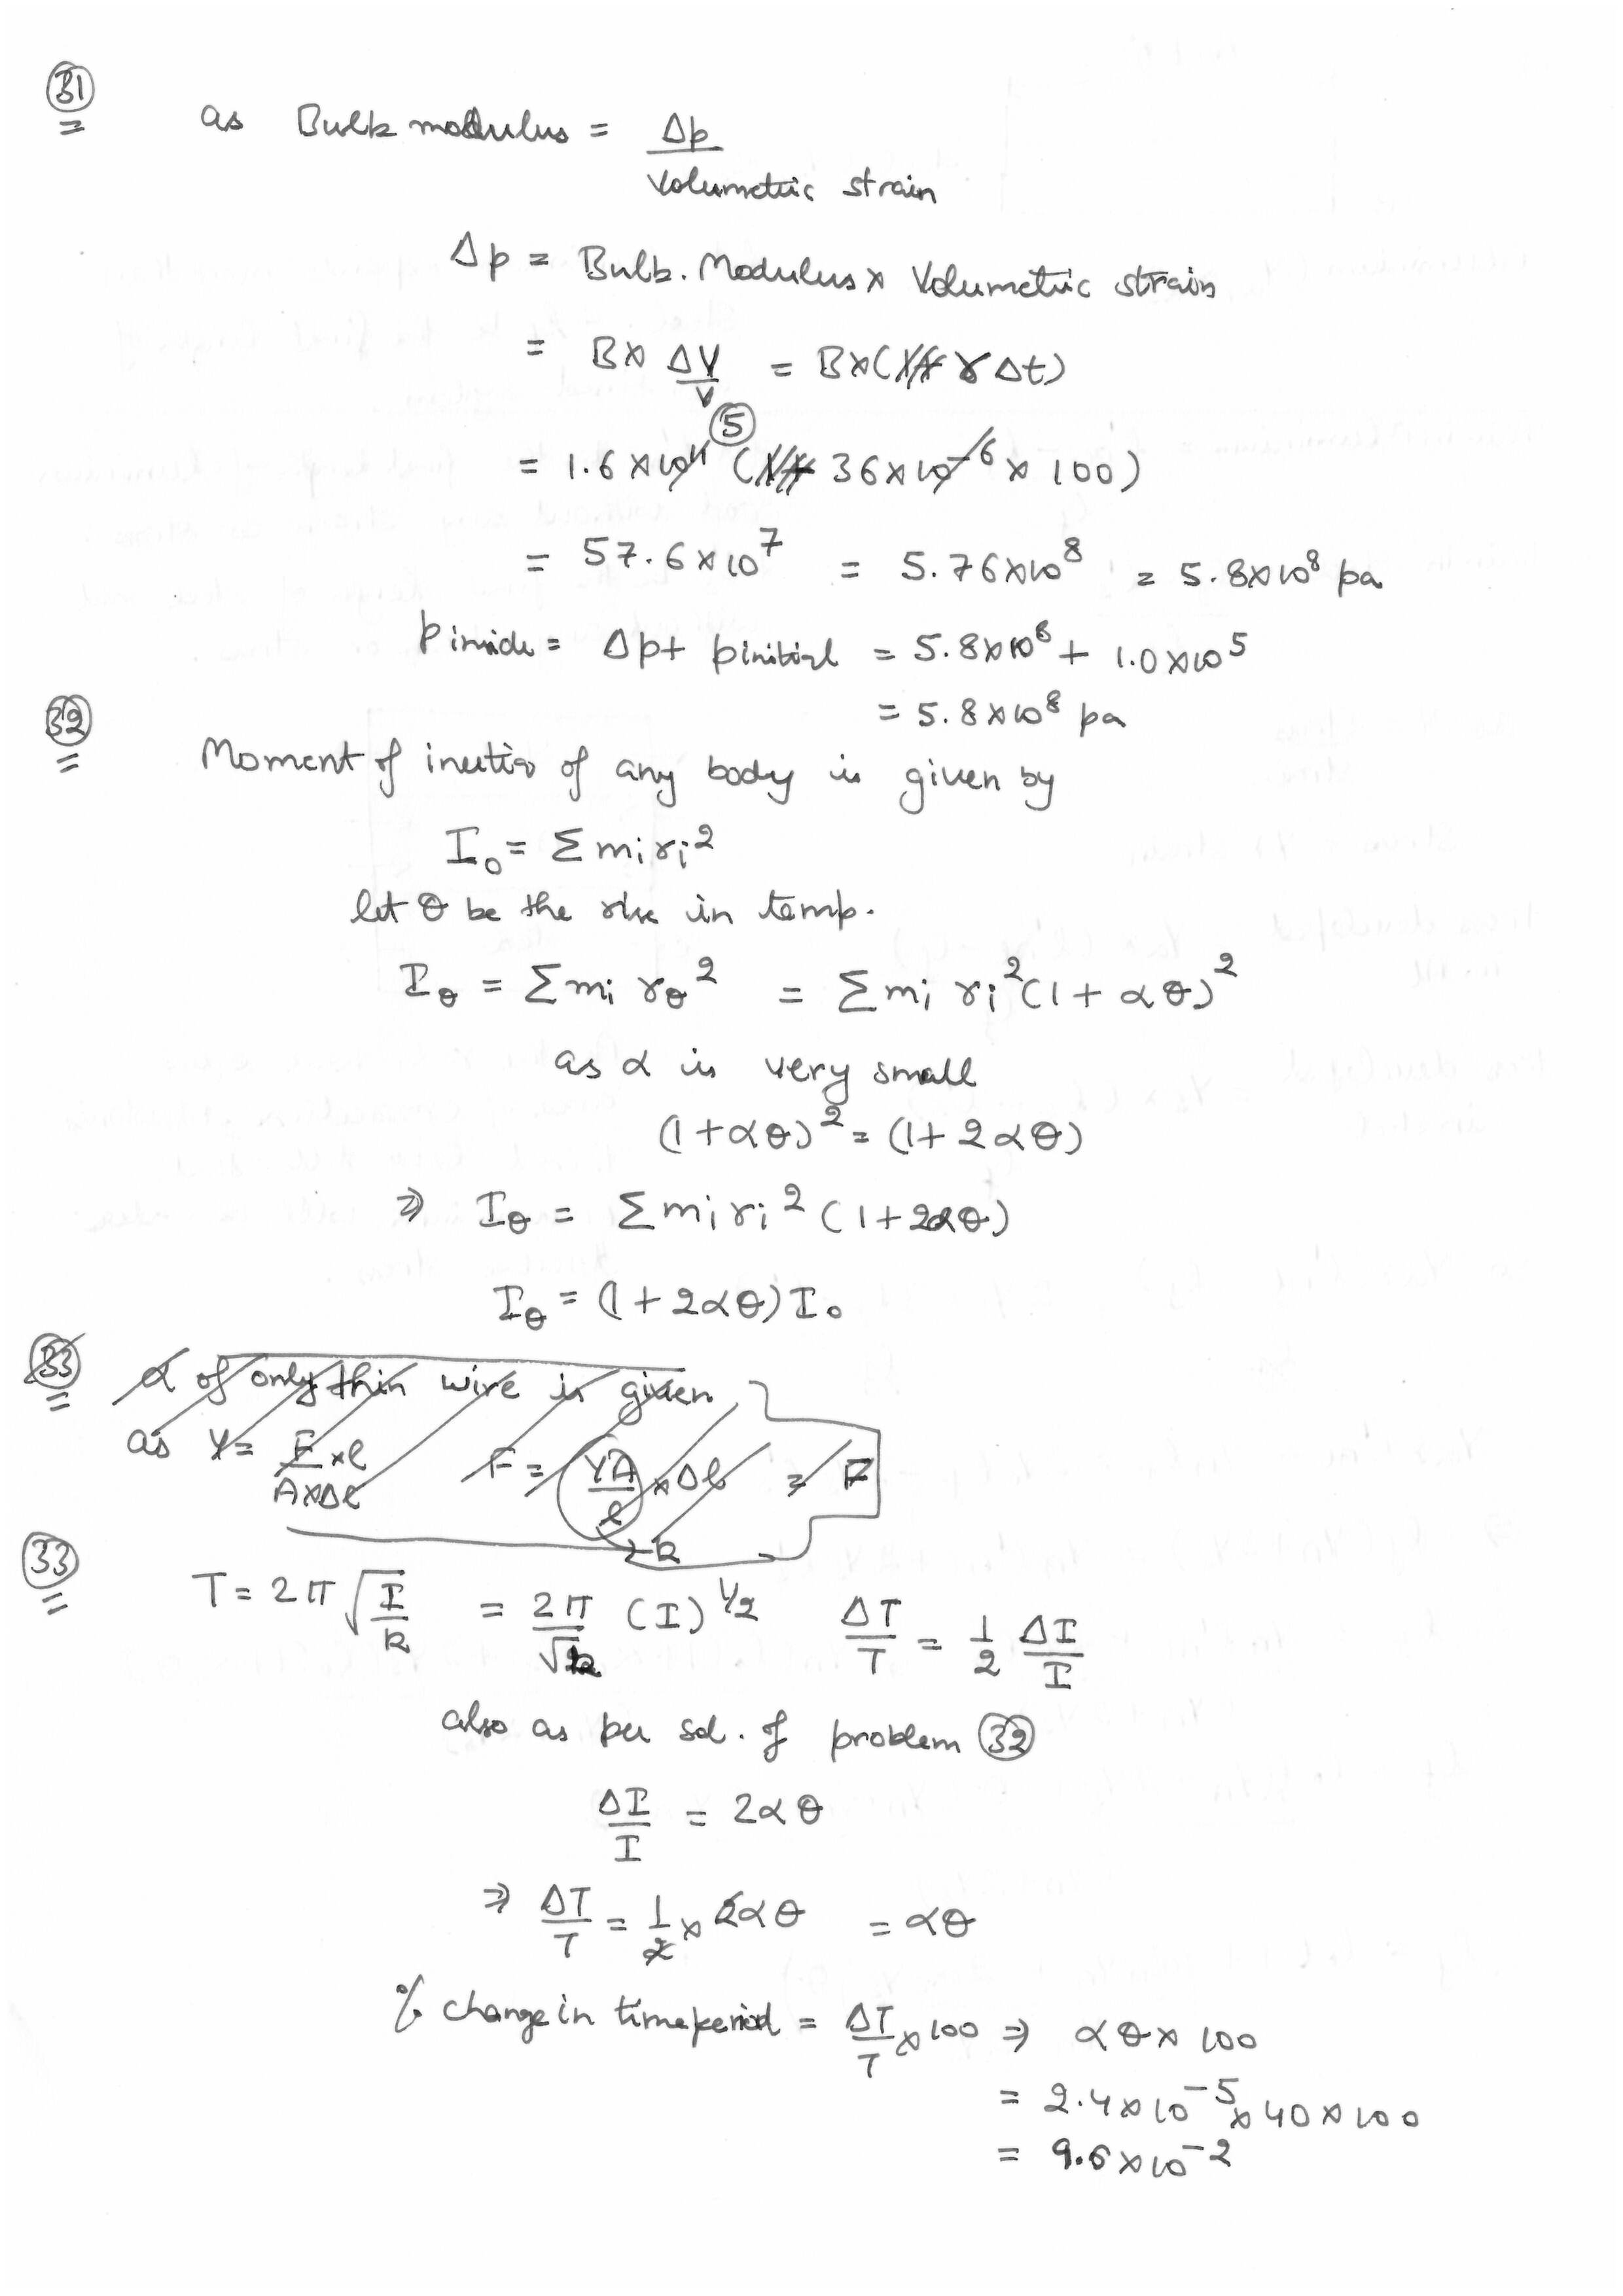 31
as Bulk modulus = Δp / Volumetric strain
Δp = Bulk. Modulus x Volumetric strain
= B x ΔV/V = B x ( γ Δt)
= 1.6 x 10^11 ( 36 x 10^-6 x 100) 5
= 57.6 x 10^7 = 5.76 x 10^8 = 5.8 x 10^8 pa
p inside = Δp + p initial = 5.8 x 10^8 + 1.0 x 10^5
= 5.8 x 10^8 pa
32
Moment of inertia of any body is given by
I₀ = Σ mi ri²
let θ be the rise in temp.
Iθ = Σ mi rθ² = Σ mi ri² (1 + αθ)²
as α is very small
(1 + αθ)² = (1 + 2αθ)
⇒ Iθ = Σ mi ri² (1 + 2αθ)
Iθ = (1 + 2αθ) I₀
33 α of only thin wire is given
as Y = F x l / A x Δl F = YA/l x Δl = F
k
33
T = 2π √(I/k) = 2π/√k (I)^1/2 ΔT/T = 1/2 ΔI/I
also as per sol. of problem 32
ΔI/I = 2αθ
⇒ ΔT/T = 1/2 x 2αθ = αθ
% change in timeperiod = ΔT/T x 100 ⇒ αθ x 100
= 2.4 x 10^-5 x 40 x 100
= 9.6 x 10^-2